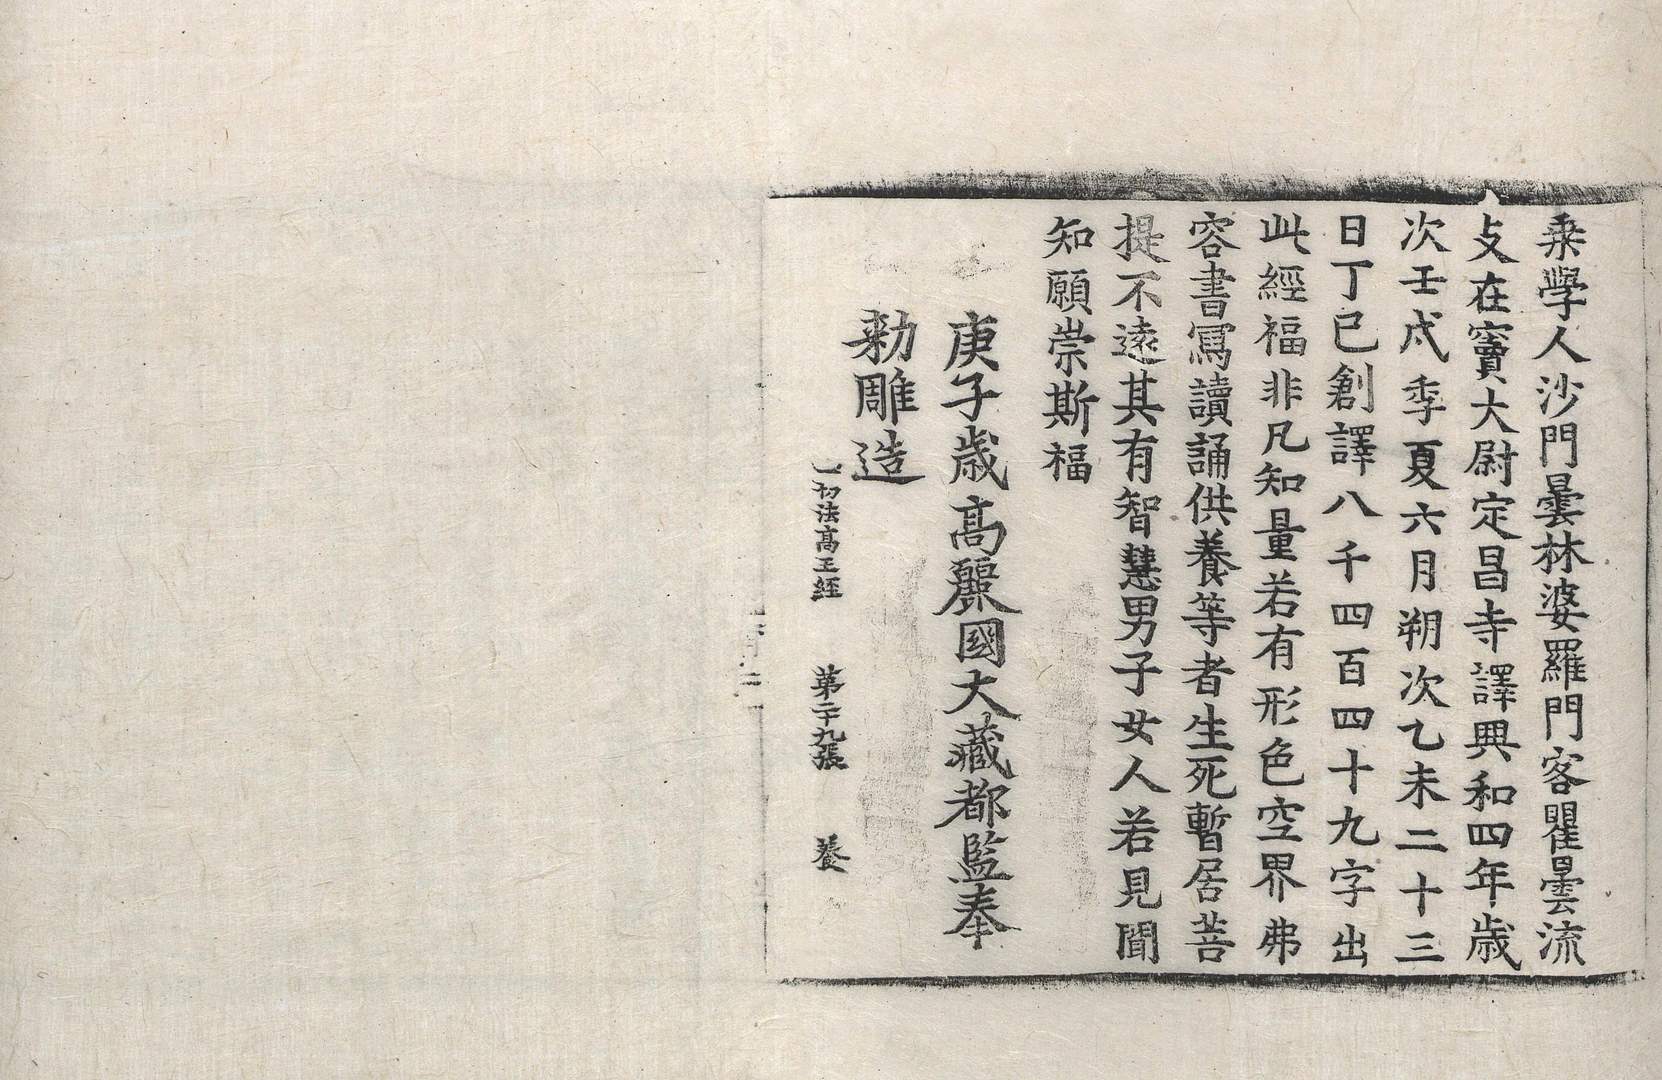 乘學人沙門曇林婆羅門客瞿曇流
支在竇大尉定昌寺譯興和四年歲
次壬戌季夏六月朔次乙未二十三
日丁巳創譯八千四百四十九字出
此經福非凡知量若有形色空界弗
容書寫讀誦供養等者生死暫居菩
提不遠其有智慧男子女人若見聞
知願崇斯福
庚子歲高麗國大藏都監奉
勑雕造
一切法高王經 第二十九張 養